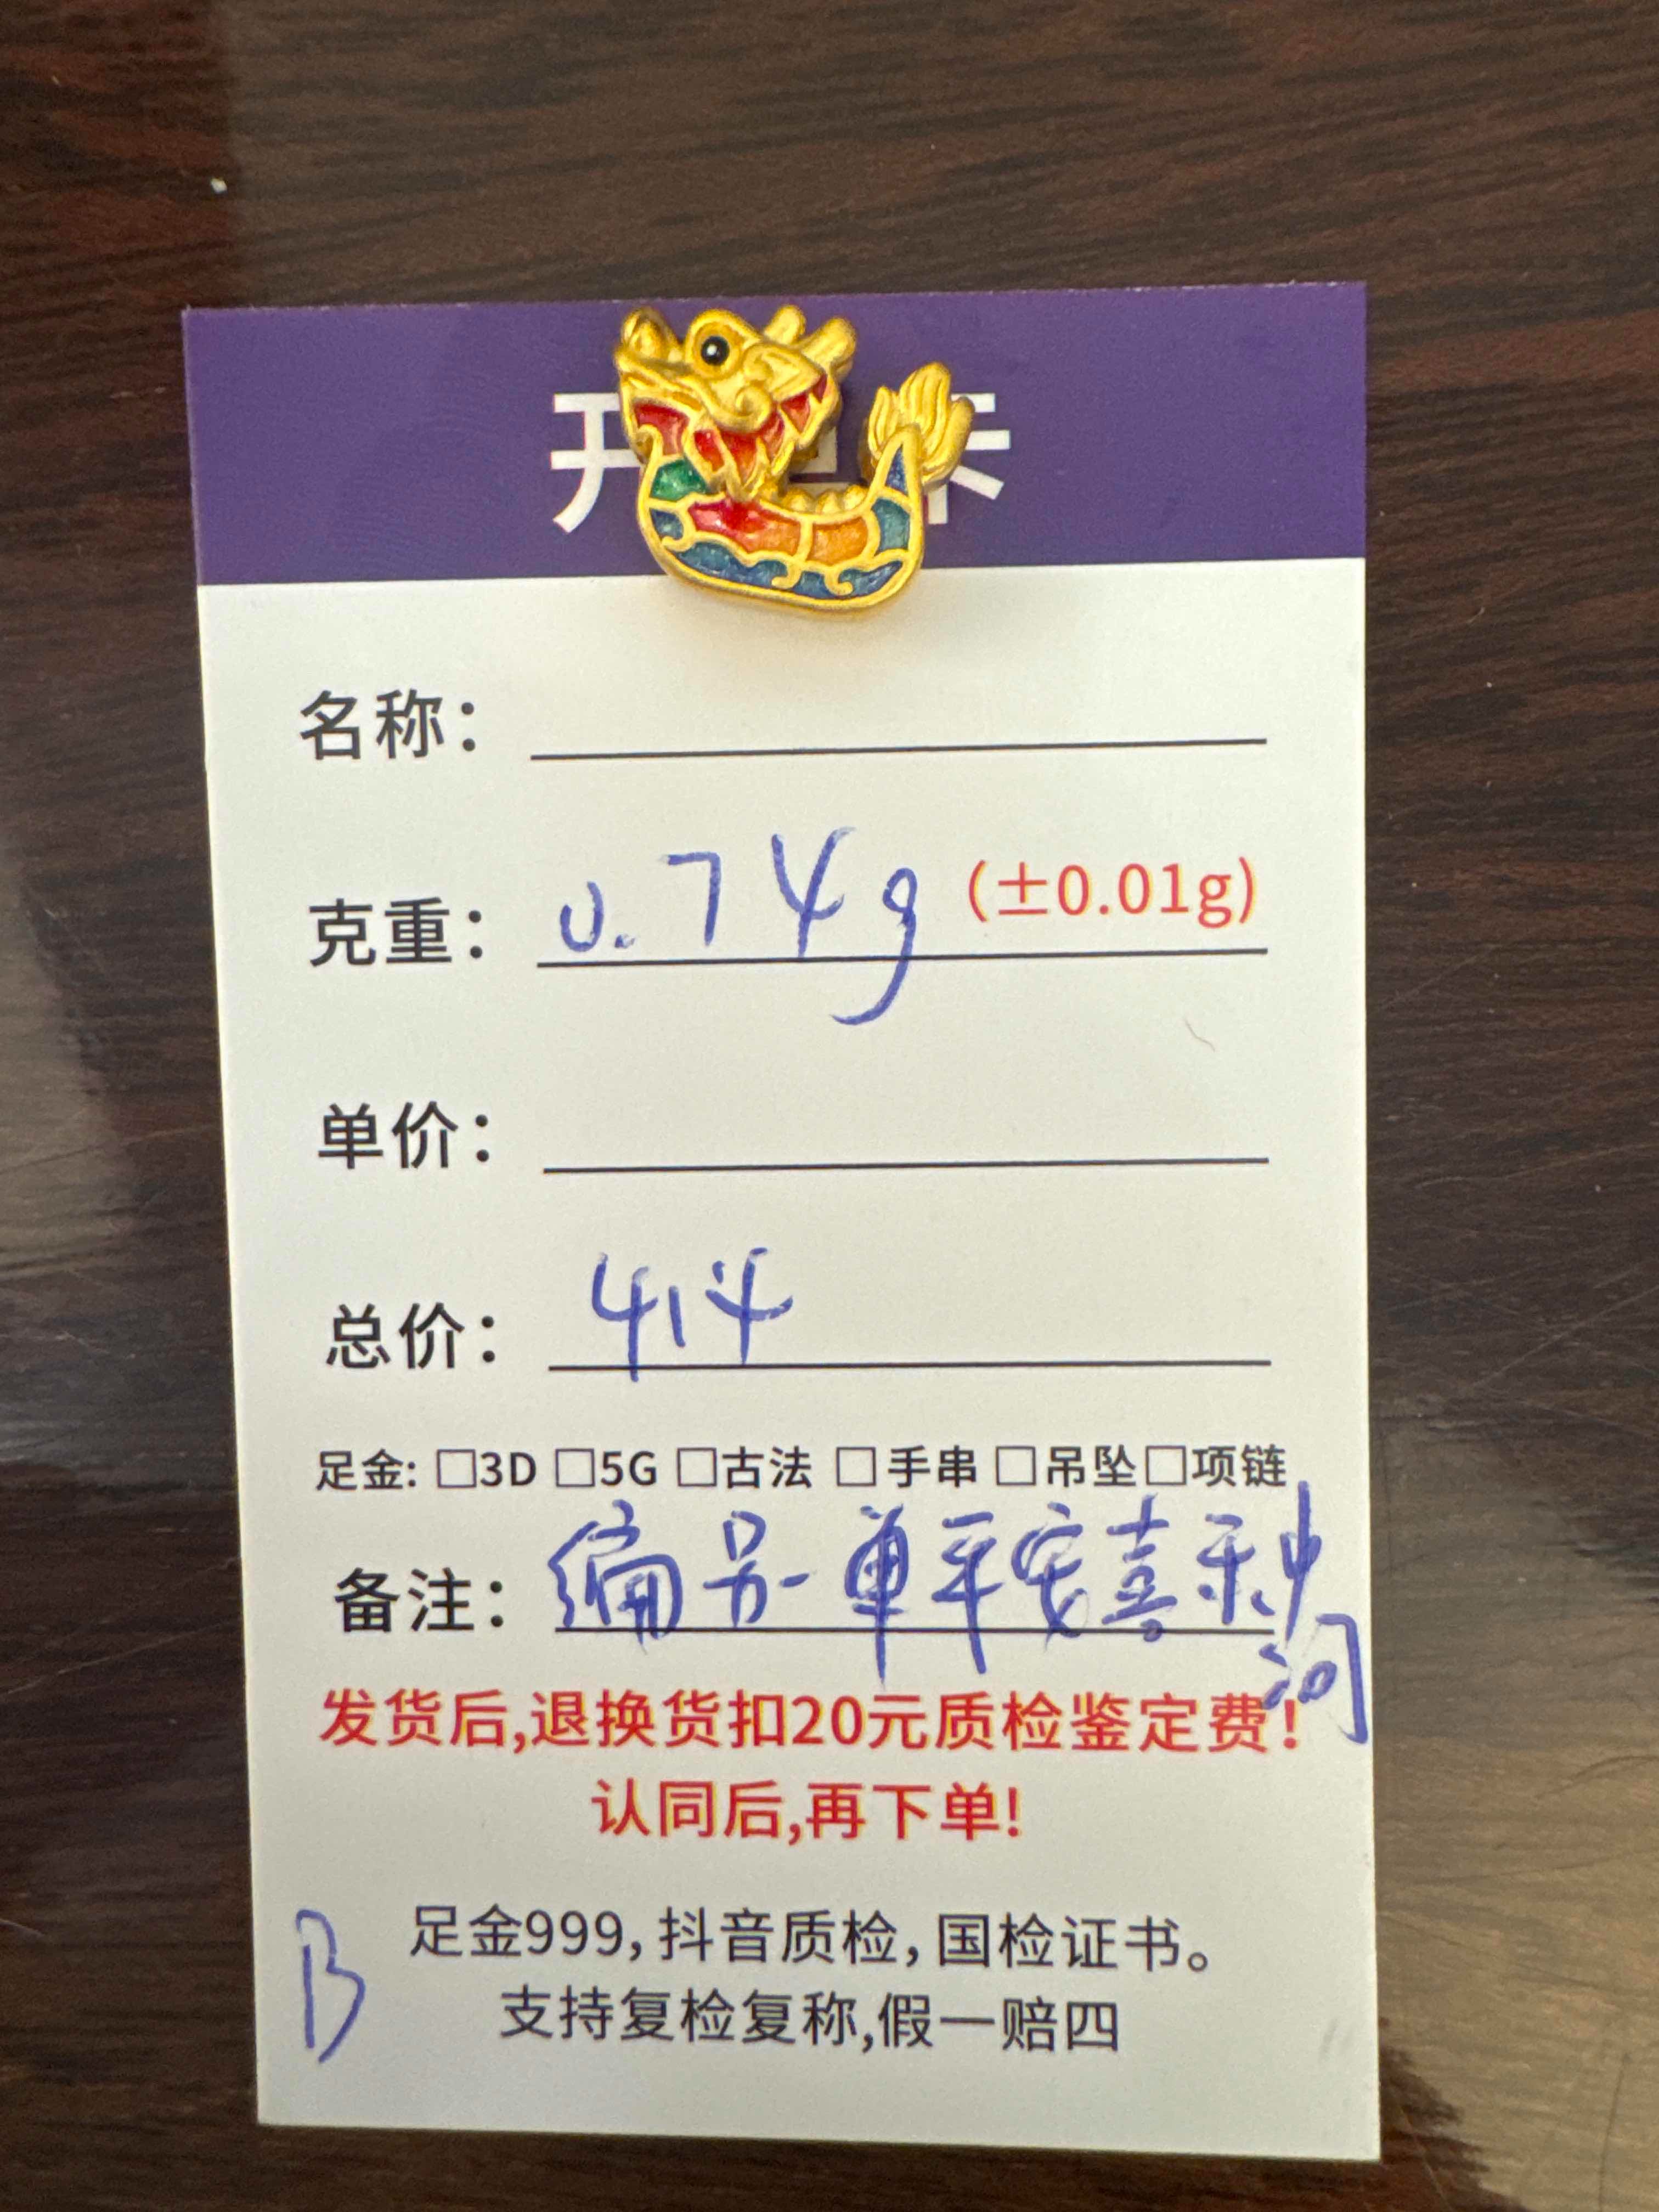 开 卡
名称：
克重：0.74g (±0.01g)
单价：
总价：414
足金: □3D □5G □古法 □手串 □吊坠 □项链
备注：编号-单平安喜乐
发货后,退换货扣20元质检鉴定费!
认同后,再下单!
B
足金999,抖音质检,国检证书。
支持复检复称,假一赔四